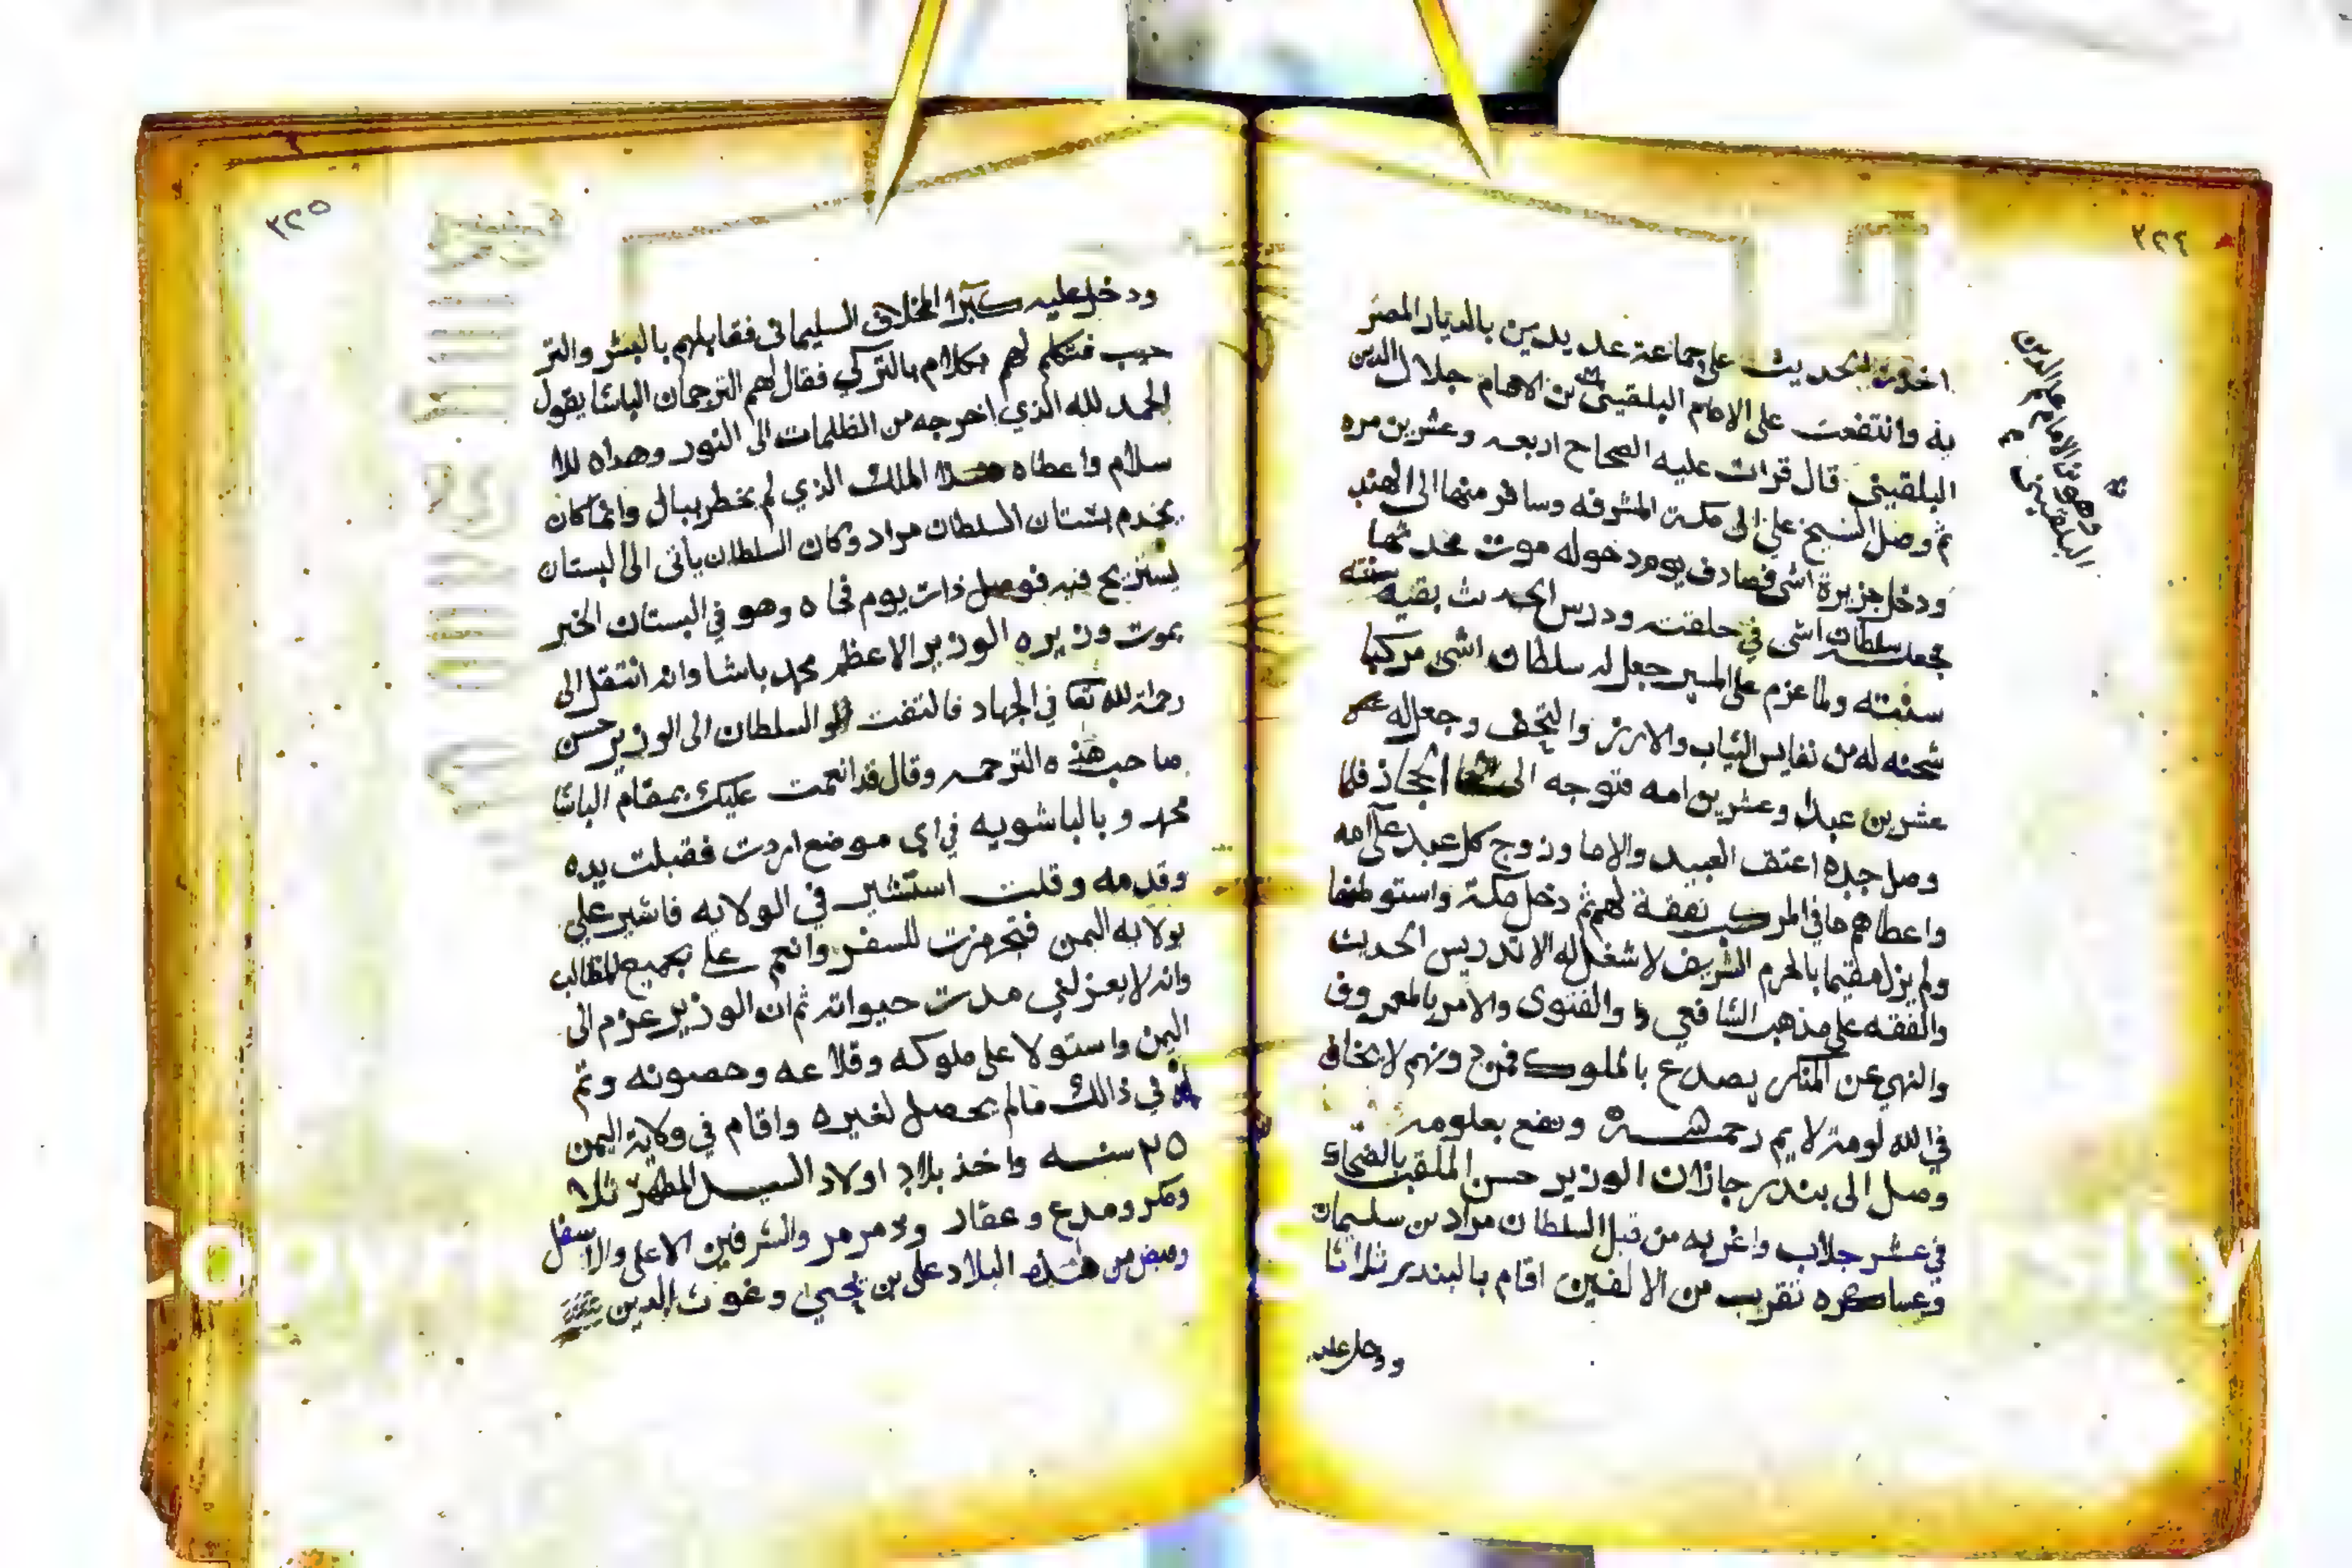 ٣٢٤
اخذت الحديث على جماعة عديدين بالديار المصر
يه وانتفعت على الامام البلقيني بن الامام جلال الدين
البلقيني قال قرات عليه الصحاح اربعه وعشرين مره
ثم وصل الشيخ علي الى مكة المشرفه وسافر منها الى الهند
ودخل جزيرة اشي فصادف يوم دخوله موت محدثها
فجعله سلطان اشي في حلقته ودرس الحديث بقيه سنته
سنته ولما عزم على المسير جعل له سلطان اشي مركبا
شحنه له من نفايس الثياب والارز والتحف وجعل له
عشرين عبدا وعشرين امه فتوجه الى الحجاز فلما
وصل جده اعتق العبيد والاما وزوج كل عبد على امه
واعطاهم ما في المركب نفقة لهم ثم دخل مكة واستوطنها
ولم يزل مقيما بالحرم الشريف لا شغل له الا تدريس الحديث
والفقه على مذهب الشافعي والفتوى والامر بالمعروف
والنهي عن المنكر يصدع بالملوك فمن دونهم لا يخاف
في الله لومة لايم رحمه ونفع بعلومه
وصل الى بندر جازان الوزير حسن الملقب بالضحاك
في عشر جلاب واغربه من قبل السلطان مراد بن سليمان
وعساكره تقريب من الالفين اقام بالبندر ثلاثا
ودخل عليه
وهو بن الامام علم الدين
البلقيني
٣٢٥
ودخل عليه كبرا المخلاف السليماني فقابلهم بالبشر والتر
حيب فتكلم لهم بكلام بالتركي فقال لهم الترجمان الباشا يقول
الحمد لله الذي اخرجه من الظلمات الى النور وهداه للا
سلام واعطاه هذا الملك الذي لم يخطر ببال وانما كان
يخدم بستان السلطان مراد وكان السلطان ياتي الى البستان
يستريح فيه فوصل ذات يوم فجاه وهو في البستان الخبر
بموت وزيره الوزير الاعظم محمد باشا وانه انتقل الى
رحمة الله تعا في الجهاد فالتفت السلطان الى الوزير حسن
صاحب هذه الترجمه وقال قد انعمت عليك بمقام الباشا
محمد وبالباشويه في اي موضع اردت فقبلت يده
وقدمه وقلت استشير في الولايه فاشير علي
بولايه اليمن فتجهزت للسفر وانعم علي بجميع المطالب
وانه لا يعزلني مدت حيواته ثم ان الوزير عزم الى
اليمن واستولا على ملوكه وقلاعه وحصونه وتم
له في ذالك مالم يحصل لغيره واقام في ولاية اليمن
٢٥ سنه واخذ بلاد اولاد السيد المطهر ثلا
ومدع وعفار وذمرمر والشرفين الاعلى والاسفل
وقبض من هذه البلاد علي بن يحيى وغوث الدين